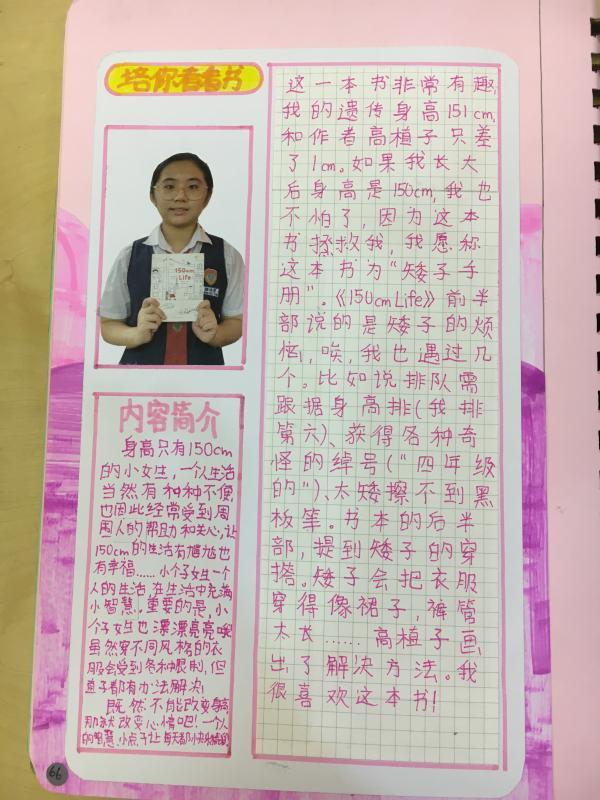 培你看看书
150cm
Life
内容简介
身高只有150cm
的小女生，一个人生活
当然有种种不便
也因此经常受到周
围人的帮助和关心，让
150cm的生活有尴尬也
有幸福……小个子女生一个
人的生活，在生活中充满
小智慧。重要的是，小
个子女生也漂漂亮亮哦
虽然穿不同风格的衣
服会受到各种限制，但
直子都有办法解决！
既然不能改变身高
那就改变心情吧！一个人
的智慧，小点子让每天都小
这一本书非常有趣，
我的遗传身高151cm，
和作者高植子只差
了1cm。如果我长大
后身高是150cm，我也
不怕了，因为这本
书拯救我，我愿称
这本书为“矮子手
册”。《150cmLife》前半
部说的是矮子的烦
恼，唉，我也遇过几
个。比如说排队需
跟据身高排（我排
第六）、获得各种奇
怪的绰号（“四年级
的”）、太矮擦不到黑
板等。书本的后半
部，提到矮子的穿
搭。矮子会把衣服
穿得像裙子，裤管
太长……高植子画
出了解决方法。我
很喜欢这本书！
66